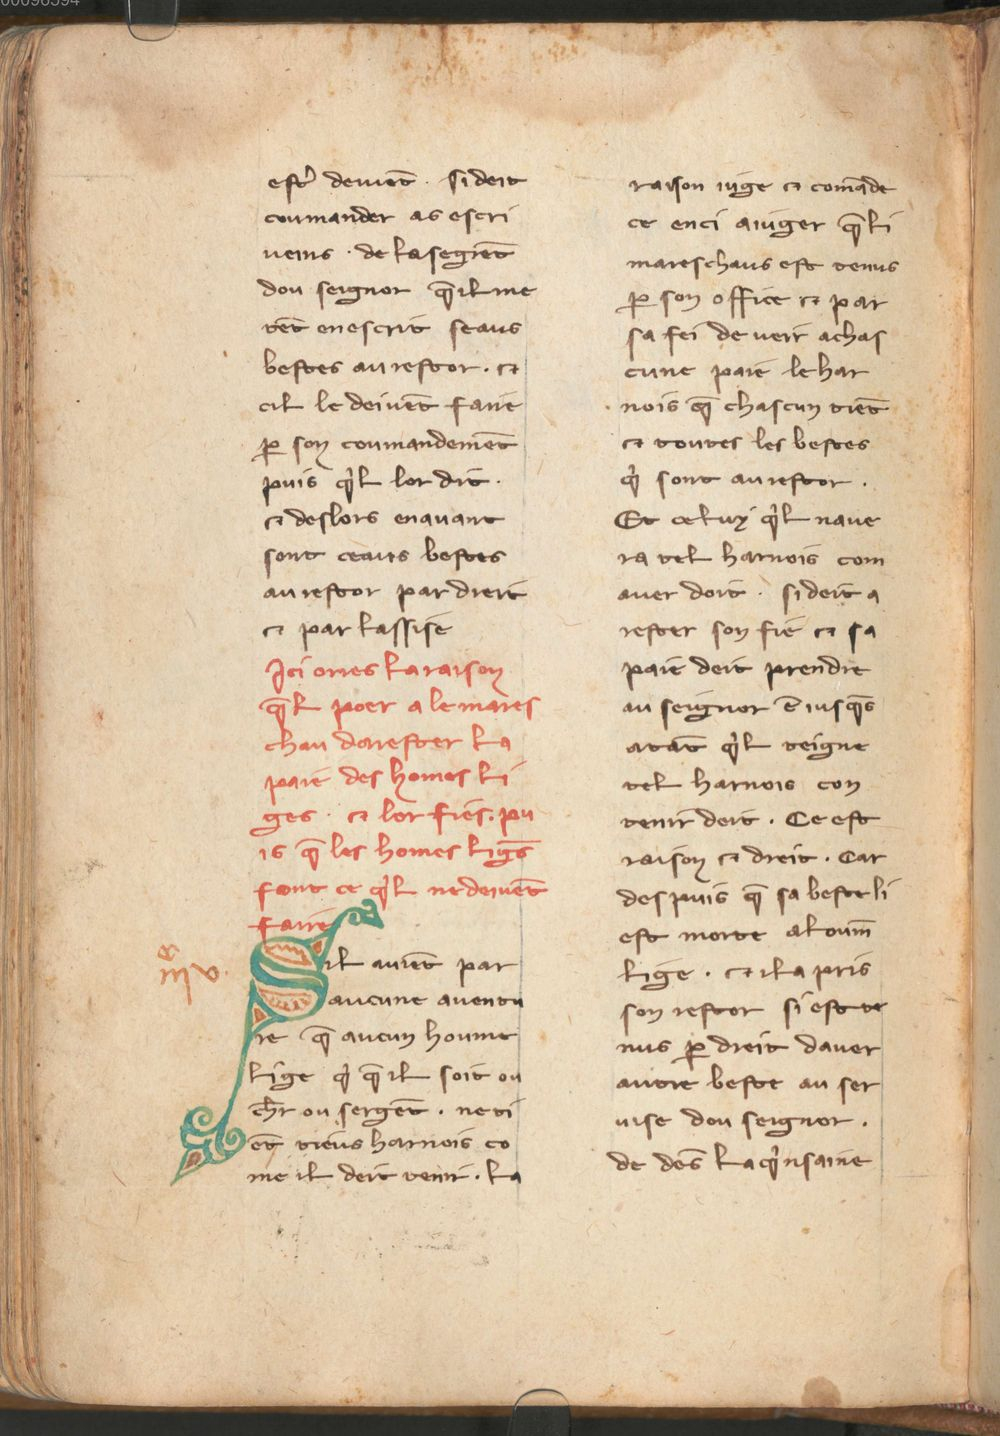 00096594
estr̉ deiuēt · si deit
coumander as escri
ueins · de la segiēt
dou seignor q̄ il me
tēt en escrit seaus
bestes au restor · ⁊
cil le deiuēt faire
ꝑ son coumandemēt
puis q̓l lor dit ·
⁊ des lors en auant
sont ceaus bestes
au restor par dreit
⁊ par lassise
Jci ories la raison
q̄l poer a le mares
chau darester la
paie des homes li
ges · ⁊ lor fies · pu
is q̄ les homes liges
font ce q̓l ne deiuēt
faire
Sil auiēt par
aucune auentu
re q̄ aucun houme
lige q̓ q̄ il soit ou
ch̄r ou sergēt · ne ti
ēt tieus harnois co
me il deit tenir · la
raison iuge ⁊ comāde
ce enci a iuger q̄ li
mareschaus est tenus
ꝑ son office ⁊ par
sa fei de ueir a chas
cune paie le har
nois q̄ chascun tiēt
⁊ toutes les bestes
q̓ sont au restor ·
Et celuy q̓l naue
ra tel harnois com
auer doit · si deit a
rester son fie ⁊ sa
paie deit prendre
au seignor ē iusq̄s
atāt q̓l teigne
tel harnois con
tenir deit · Ce est
raison ⁊ dreit · Car
despuis q̄ sa beste li
est morte al oum̄
lige · ⁊ il a pris
son restor si est te
nus ꝑ dreit dauer
autre beste au ser
uise dou seignor ·
de des la q̓nsaine